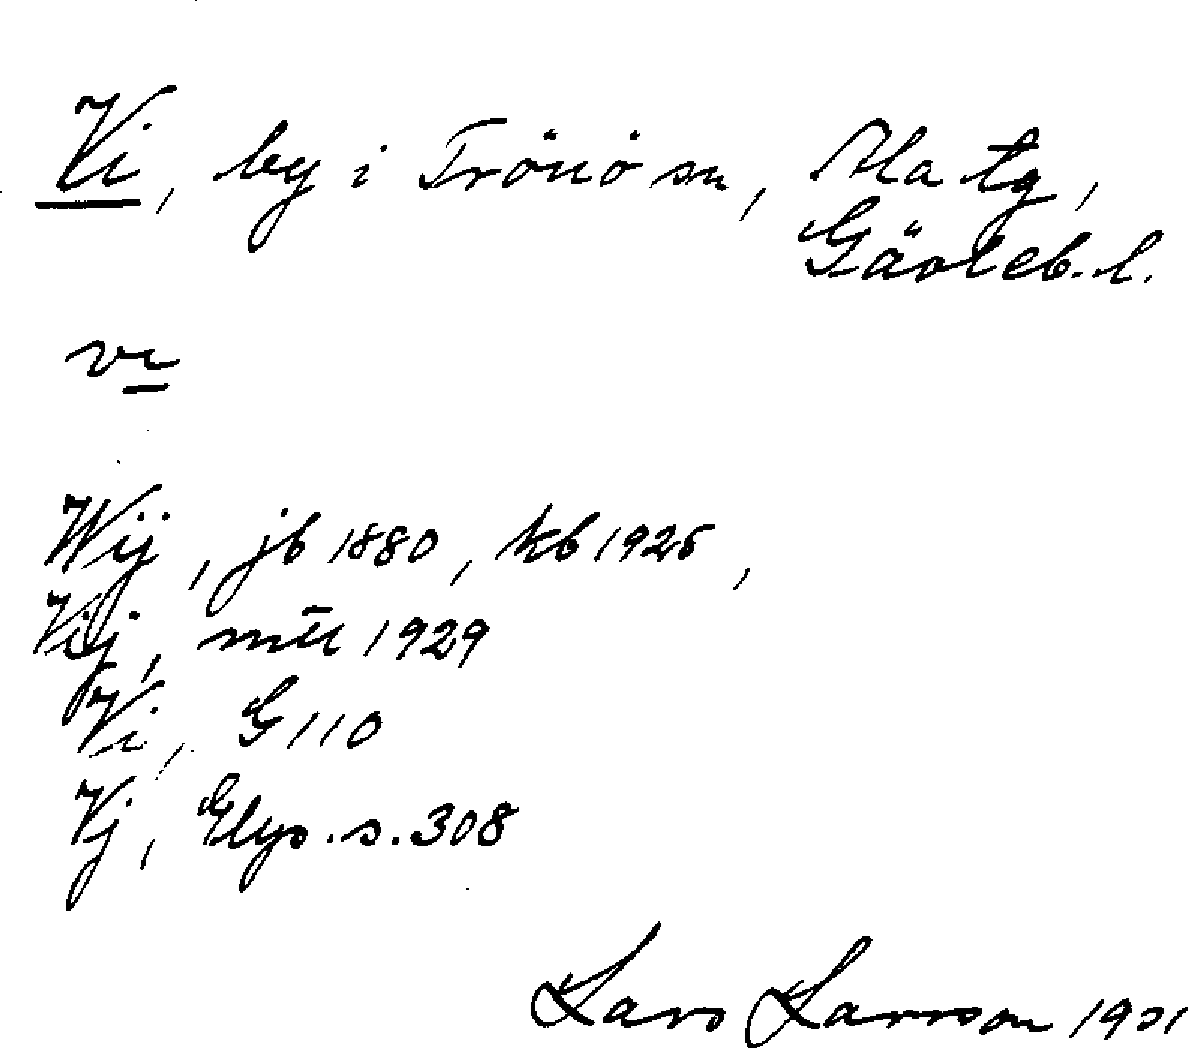 Vi, by i Trönö sn, Ala tg,
Gävleb. l.
vi
Wij, jb 1880, kb 1925,
Vij, mtl 1929
Vi, G 110
Vj, Elys. s. 308
Lars Larsson